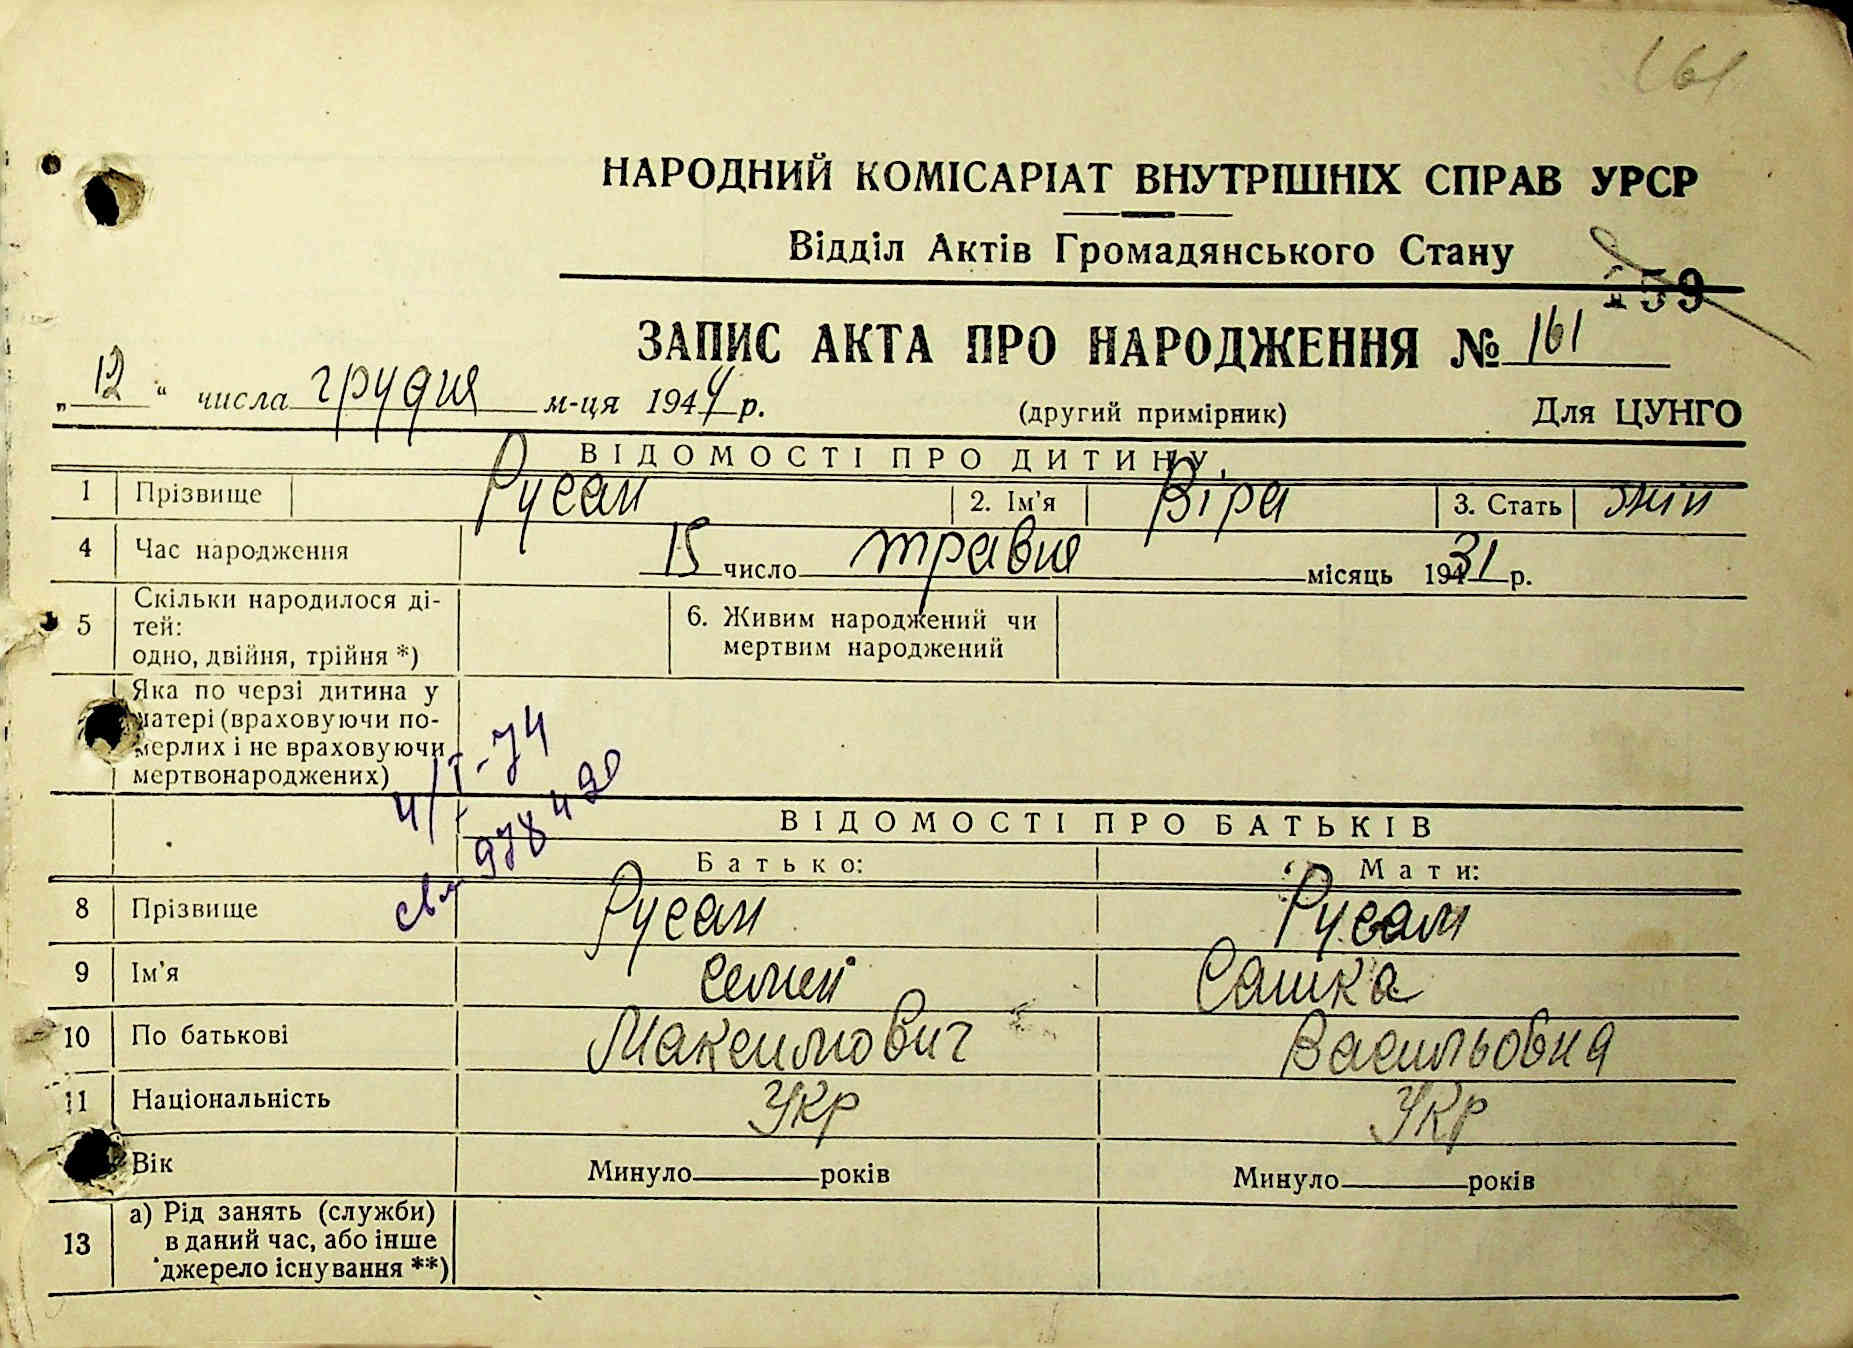 161
НАРОДНИЙ КОМІСАРІАТ ВНУТРІШНІХ СПРАВ УРСР
Відділ Актів Громадянського Стану
159
ЗАПИС АКТА ПРО НАРОДЖЕННЯ № 161
„12“ числа грудня м-ця 1944 р. (другий примірник) Для ЦУНГО
ВІДОМОСТІ ПРО ДИТИНУ
1 Прізвище Русан 2. Ім'я Віра 3. Стать жін
4 Час народження 15 число травня місяць 1931 р.
5 Скільки народилося ді-
тей:
одно, двійня, трійня *)
6. Живим народжений чи
мертвим народжений
Яка по черзі дитина у
матері (враховуючи по-
мерлих і не враховуючи
мертвонароджених)
4/I-74
978420
ВІДОМОСТІ ПРО БАТЬКІВ
Батько: Мати:
8 Прізвище Русан Русан
9 Ім'я Семен Сашка
10 По батькові Максимович Васильовна
11 Національність Укр Укр
Вік Минуло років Минуло років
13 а) Рід занять (служби)
в даний час, або інше
джерело існування **)